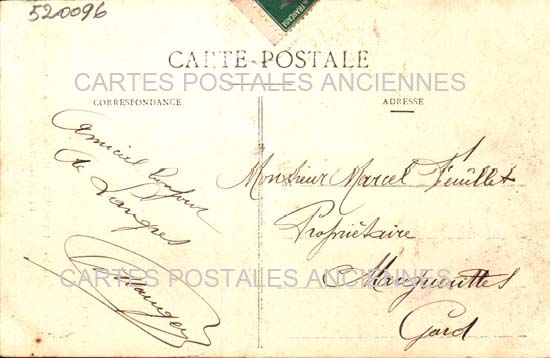 520096
FRANÇAISE
CARTE POSTALE
CARTES POSTALES ANCIENNES
CORRESPONDANCE
ADRESSE
Amical Bonjour
de Langres
Monsieur Marcel Feuillet
Propriétaire
Marguerittes
Gard
CARTES POSTALES ANCIENNES